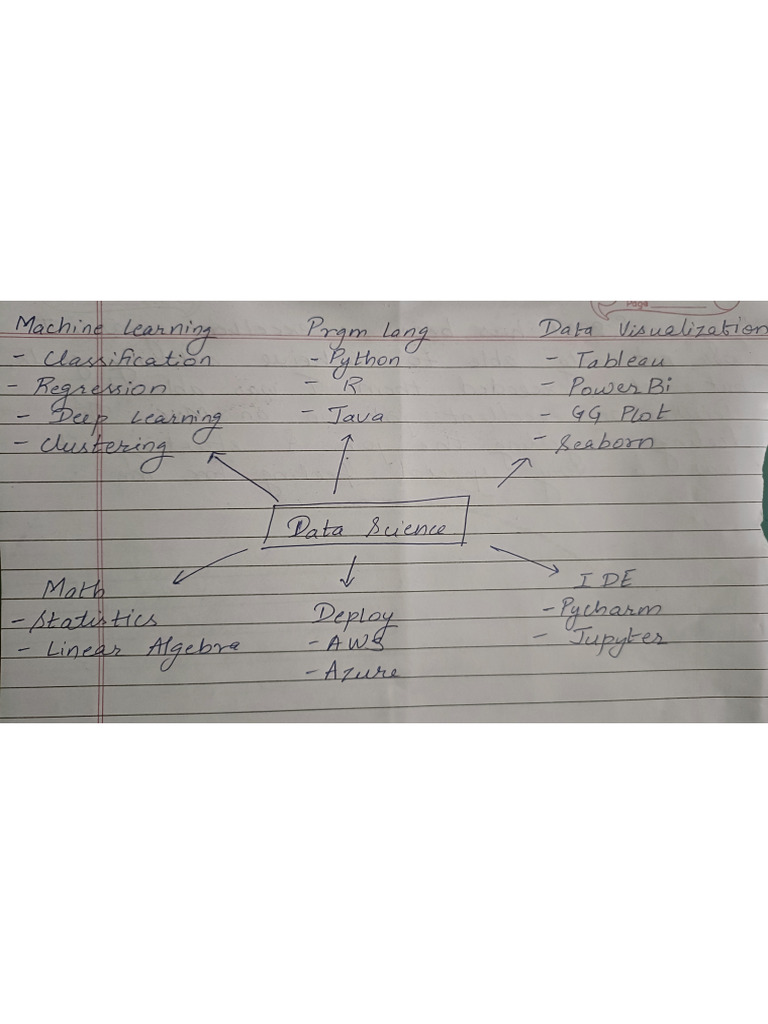 Page
Machine Learning
- Classification
- Regression
- Deep Learning
- Clustering
Prgm Lang
- Python
- R
- Java
Data Visualization
- Tableau
- PowerBi
- GG Plot
- Seaborn
Data Science
Math
- Statistics
- Linear Algebra
Deploy
- AWS
- Azure
IDE
- Pycharm
- Jupyter